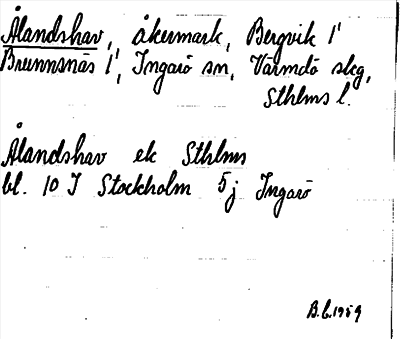 Ålandshav, åkermark, Bergvik 1¹
Brunnsnäs 1¹, Ingarö sn, Värmdö skg,
Sthlms l.
Ålandshav ek Sthlms
bl. 10 I Stockholm 5j Ingarö
B.E.1959